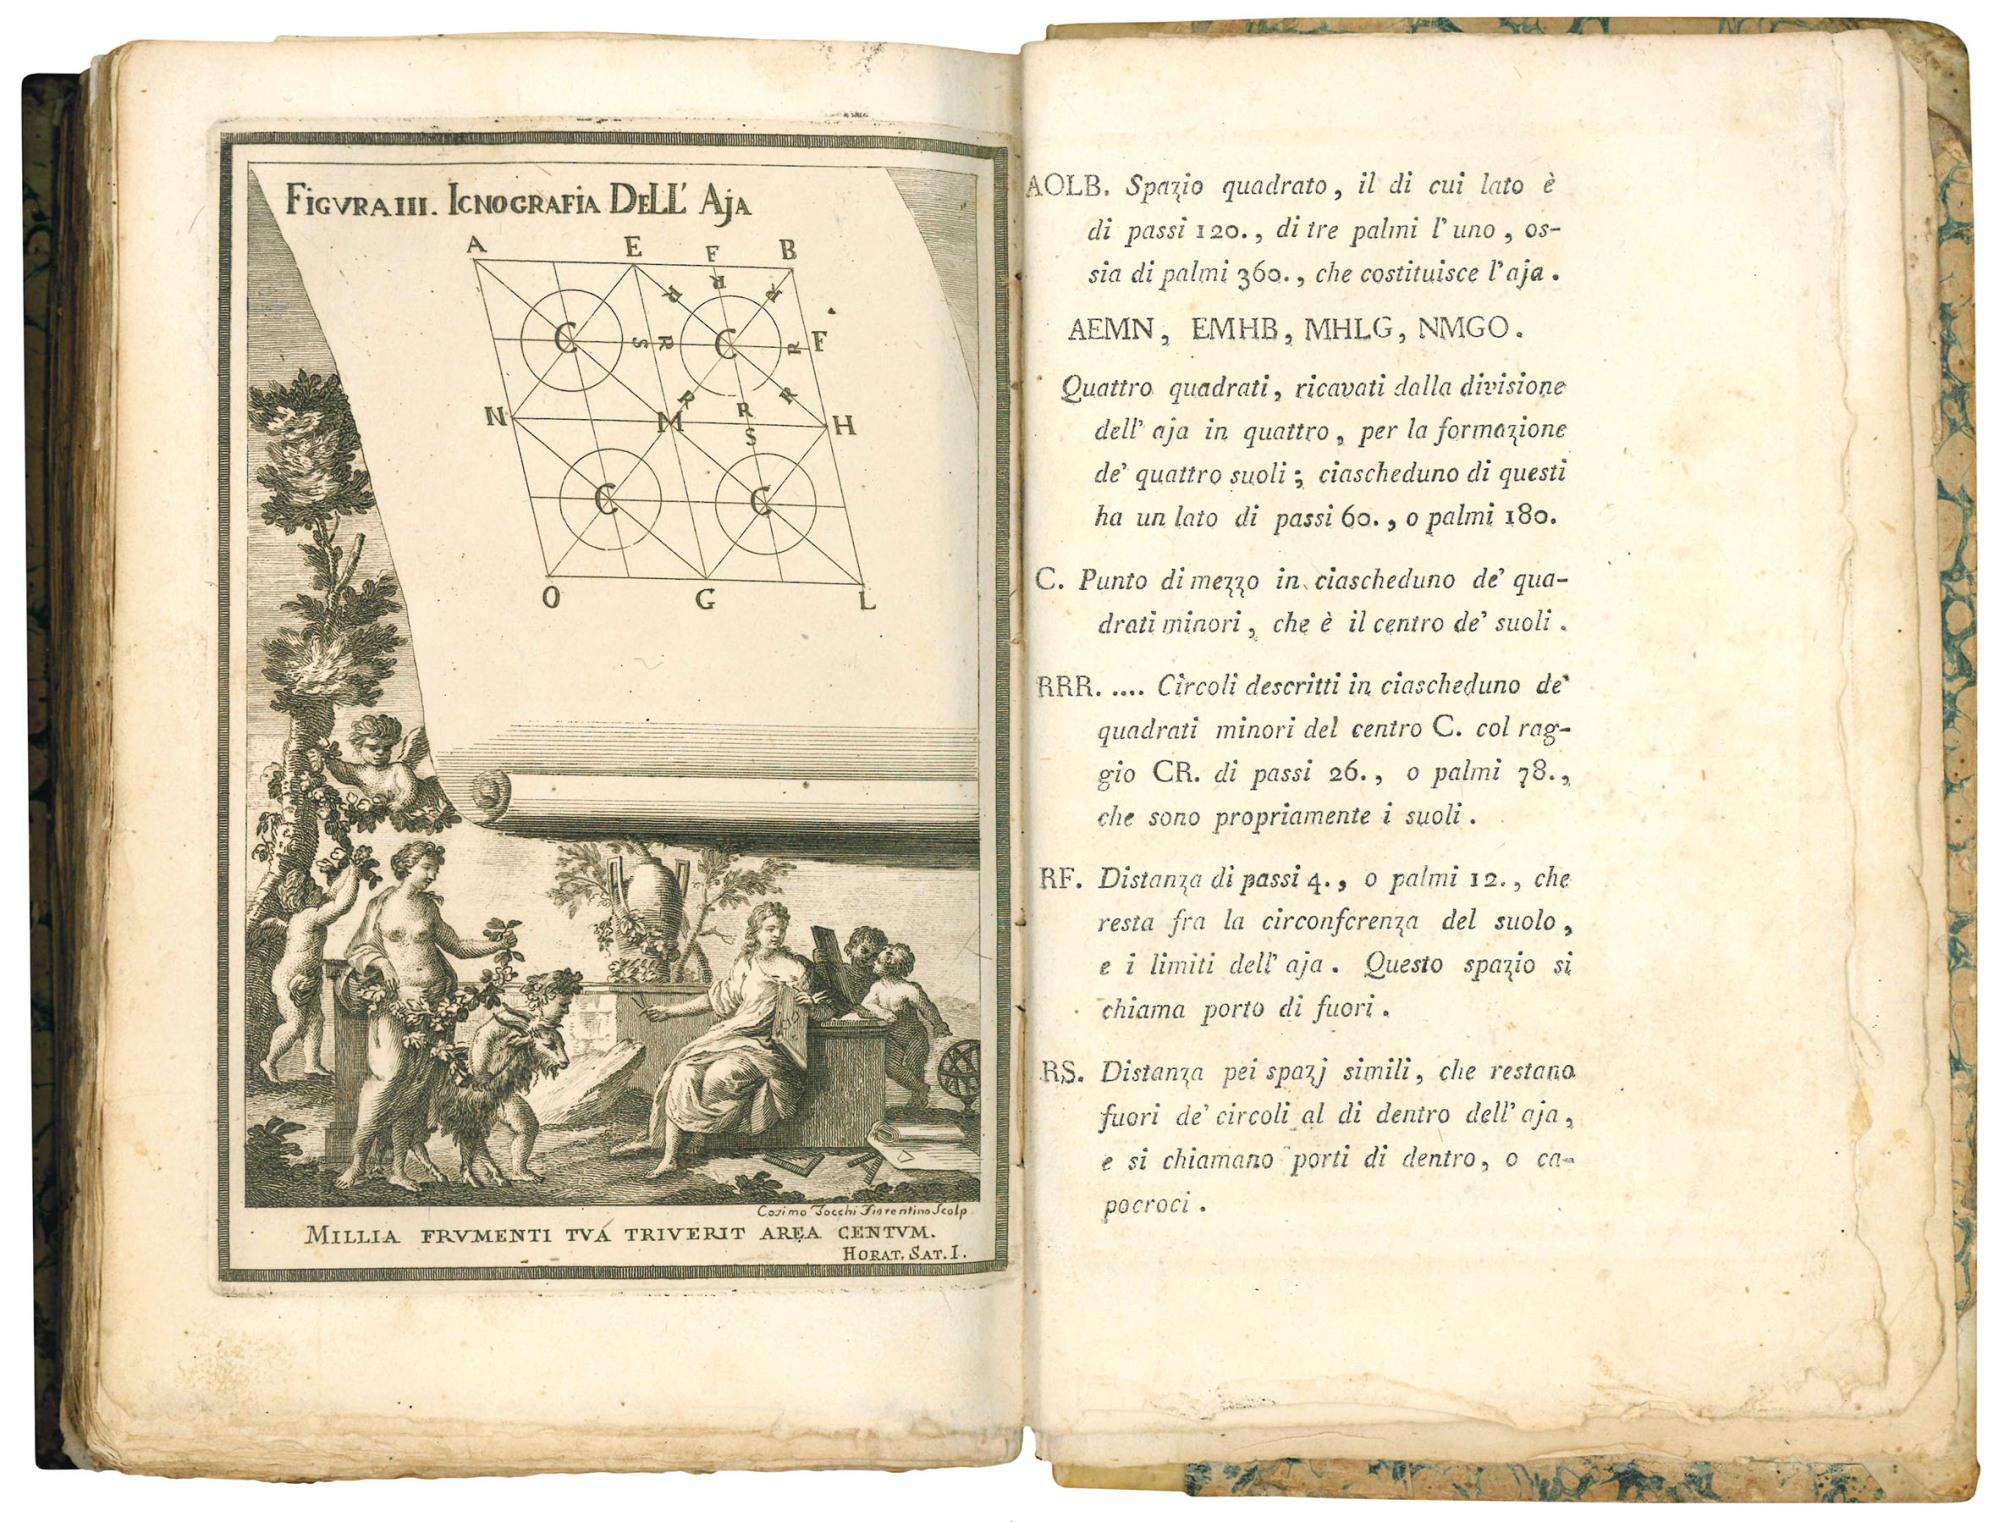 FIGVRA III. ICNOGRAFIA DELL' AJA
A E F B
R R R
C C S R R F
N M R R R H
S
C C
O G L
Cosimo Zocchi Fiorentino Scolp.
MILLIA FRVMENTI TVÁ TRIVERIT AREA CENTVM.
HORAT. SAT. I.
AOLB. Spazio quadrato, il di cui lato è
di passi 120., di tre palmi l'uno, os-
sia di palmi 360., che costituisce l'aja.
AEMN, EMHB, MHLG, NMGO.
Quattro quadrati, ricavati dalla divisione
dell' aja in quattro, per la formazione
de' quattro suoli; ciascheduno di questi
ha un lato di passi 60., o palmi 180.
C. Punto di mezzo in ciascheduno de' qua-
drati minori, che è il centro de' suoli.
RRR. .... Circoli descritti in ciascheduno de'
quadrati minori del centro C. col rag-
gio CR. di passi 26., o palmi 78.,
che sono propriamente i suoli.
RF. Distanza di passi 4., o palmi 12., che
resta fra la circonferenza del suolo,
e i limiti dell' aja. Questo spazio si
chiama porto di fuori.
RS. Distanza pei spazj simili, che restano
fuori de' circoli al di dentro dell' aja,
e si chiamano porti di dentro, o ca-
pocroci.